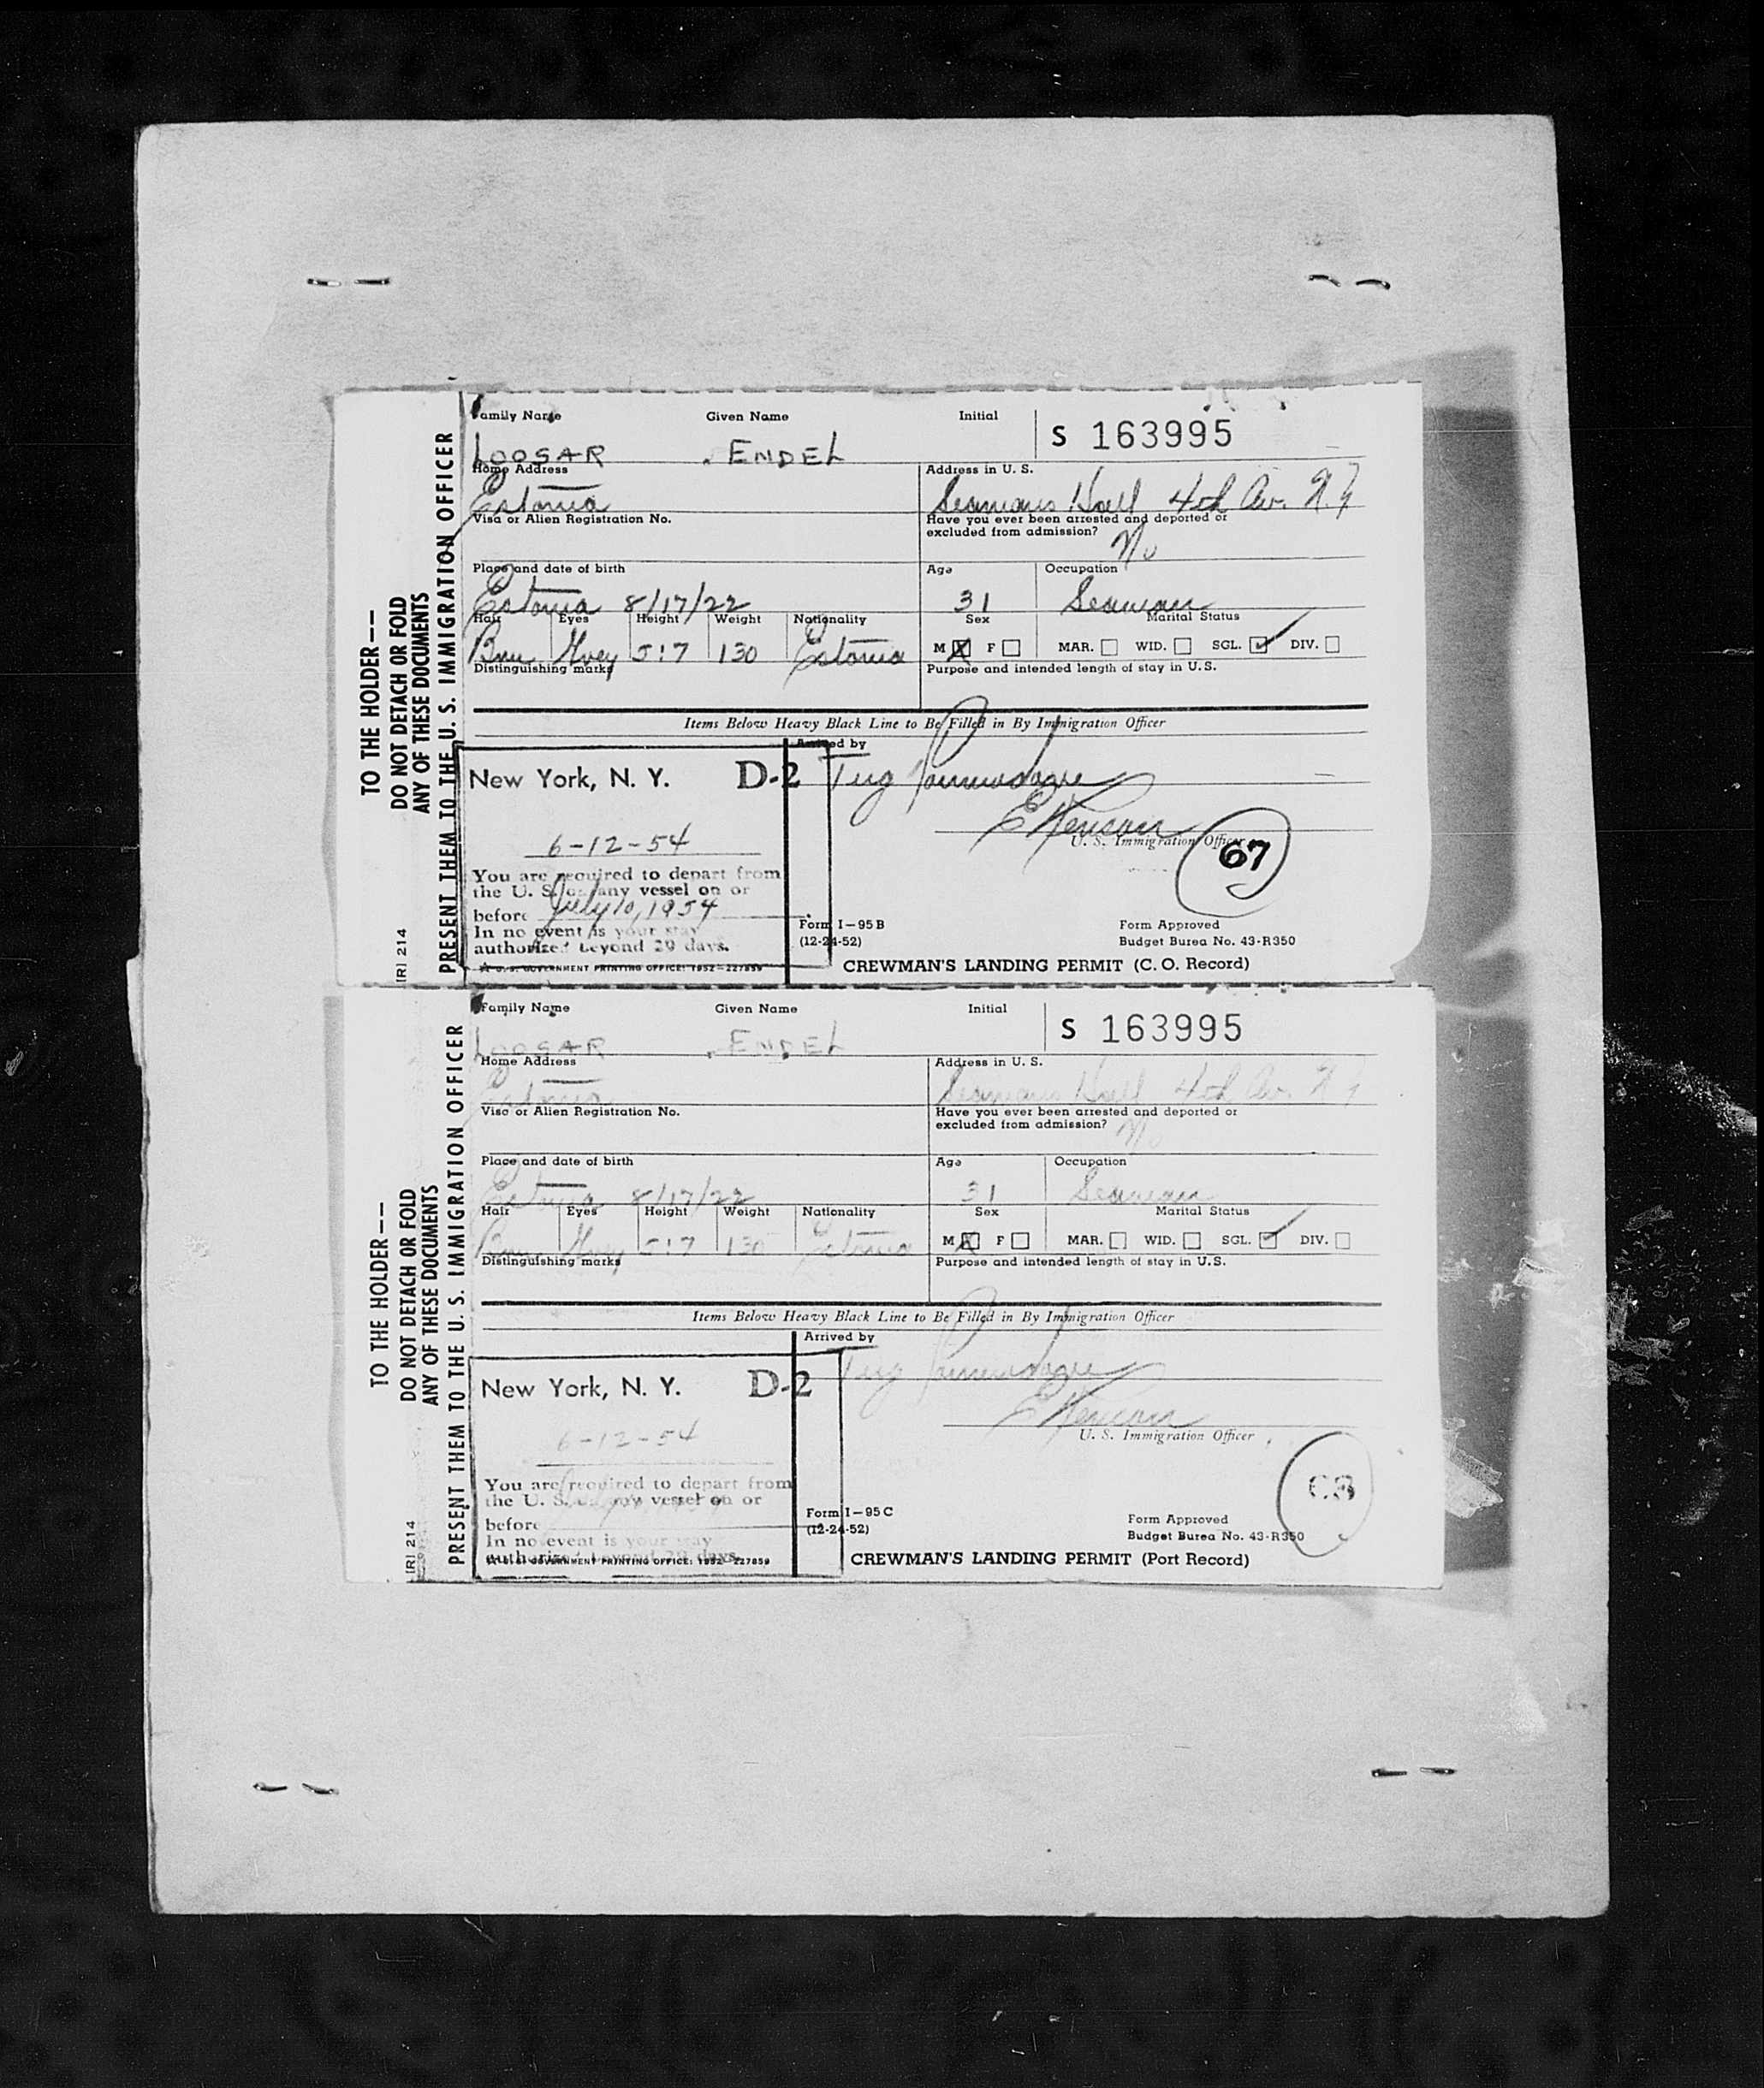 TO THE HOLDER--
DO NOT DETACH OR FOLD
ANY OF THESE DOCUMENTS
PRESENT THEM TO THE U. S. IMMIGRATION OFFICER
IRI 214
Family Name Given Name Initial S 163995
LOOSAR ENDEL
Home Address Address in U. S.
Estonia Seamans 4th Av. N.Y
Visa or Alien Registration No. Have you ever been arrested and deported or
excluded from admission?
No
Place and date of birth Age Occupation
Estonia 8/17/22 31 Seaman
Hair Eyes Height Weight Nationality Sex Marital Status
Brn Grey 5:7 130 Estonia M F MAR. WID. SGL. DIV.
Distinguishing marks Purpose and intended length of stay in U.S.
Items Below Heavy Black Line to Be Filled in By Immigration Officer
Arrived by
New York, N. Y. D-2 Tug
6-12-54
U. S. Immigration Officer
67
You are required to depart from
the U. S. on any vessel on or
before July 10, 1954
In no event is your stay
authorized beyond 29 days.
Form I-95 B Form Approved
(12-24-52) Budget Burea No. 43-R350
☆ U. S. GOVERNMENT PRINTING OFFICE: 1952-227859
CREWMAN'S LANDING PERMIT (C. O. Record)
TO THE HOLDER--
DO NOT DETACH OR FOLD
ANY OF THESE DOCUMENTS
PRESENT THEM TO THE U. S. IMMIGRATION OFFICER
IRI 214
Family Name Given Name Initial S 163995
LOOSAR ENDEL
Home Address Address in U. S.
Estonia Seamans 4th Av. N.Y
Visa or Alien Registration No. Have you ever been arrested and deported or
excluded from admission?
No
Place and date of birth Age Occupation
Estonia 8/17/22 31 Seaman
Hair Eyes Height Weight Nationality Sex Marital Status
Brn Grey 5:7 130 Estonia M F MAR. WID. SGL. DIV.
Distinguishing marks Purpose and intended length of stay in U.S.
Items Below Heavy Black Line to Be Filled in By Immigration Officer
Arrived by
New York, N. Y. D-2 Tug
6-12-54
U. S. Immigration Officer
You are required to depart from
the U. S. on any vessel on or
before
In no event is your stay
authorized beyond 29 days.
Form I-95 C Form Approved
(12-24-52) Budget Burea No. 43-R350
U. S. GOVERNMENT PRINTING OFFICE: 1952-227859
CREWMAN'S LANDING PERMIT (Port Record)